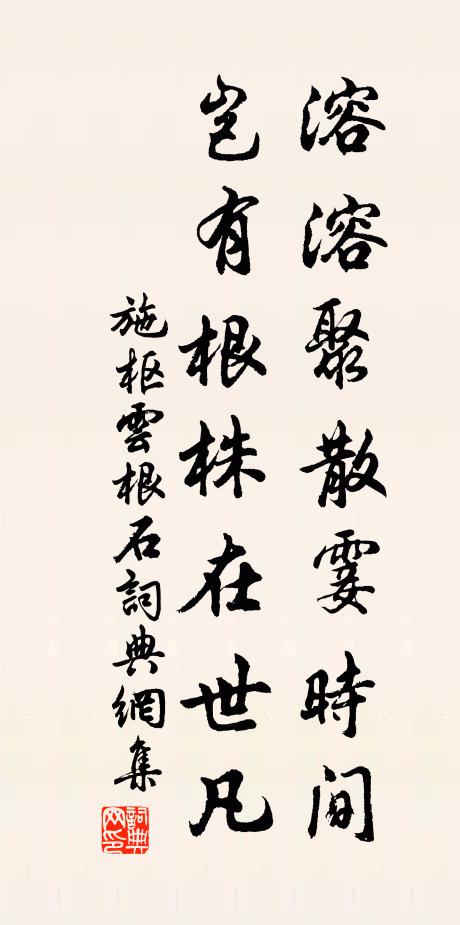 溶溶聚散霎時間
豈有根株在世凡
施枢雲根石詞典網集
詞典网印